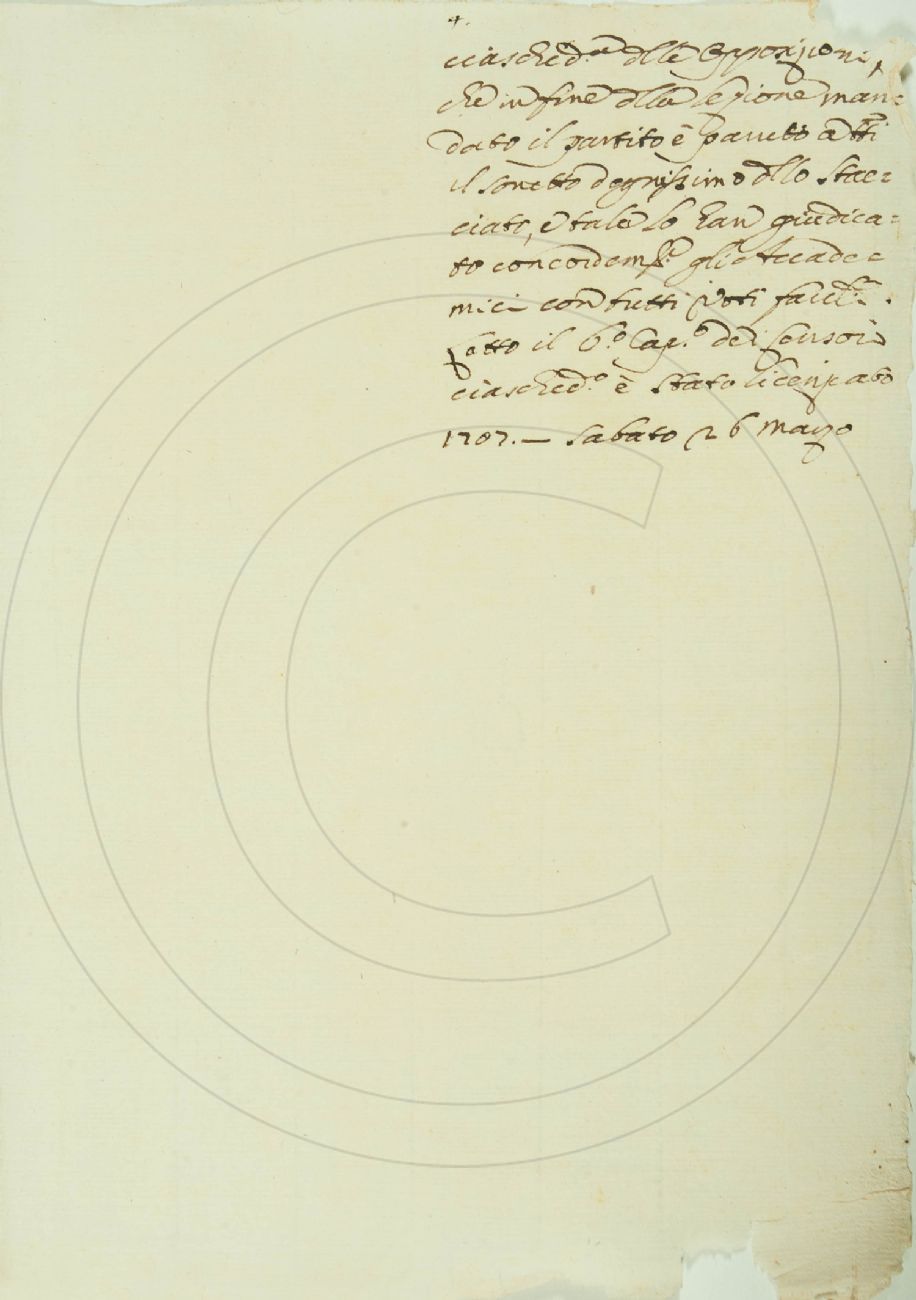 4.
ciasched.ª dlle Opposizioni,
che in fine dlla lezione man=
dato il partito è paruto a tti
il sonetto degnissimo dllo Stac=
ciato, e tale lo han giudica=
to concordem.te gli Accade=
mici con tutti i voti
Letto il 6.º Cap.º dei Censori
ciasched.º è stato licenziato
1707. — Sabato 26 Marzo